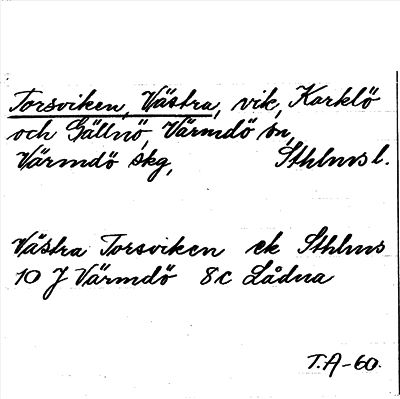 Torsviken, Västra, vik, Karklö
och Gällnö, Värmdö sn,
Värmdö skg, Sthlms l.
Västra Torsviken ek Sthlms
10 J Värmdö 8c Lådna
T.A-60.